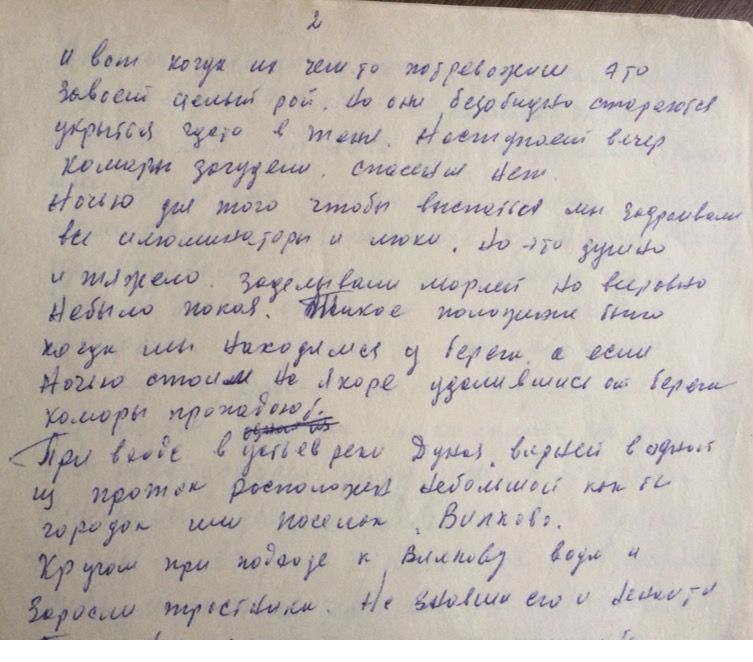 2
и вот когда их чем то потревожиш это
завоет целый рой. Но они безобидно стараются
укрыться гдето в тени. Наступает вечер
комары загудели. спасения нет.
Ночью для того чтобы выспаться мы задраивали
все илюминаторы и люки. Но это душно
и тяжело. Заделывали марлей но всеровно
небыло покоя. Такое положение было
когда мы находимся у берега, а если
ночью стоим на якоре удалившись от берега
комары пропадают.
При входе в устьев реки Дуная, верней в одной
из проток расположен небольшой как бы
городок или поселок, Вилково.
Кругом при подходе к Вилкову вода и
заросли тростника. Не знавши его и